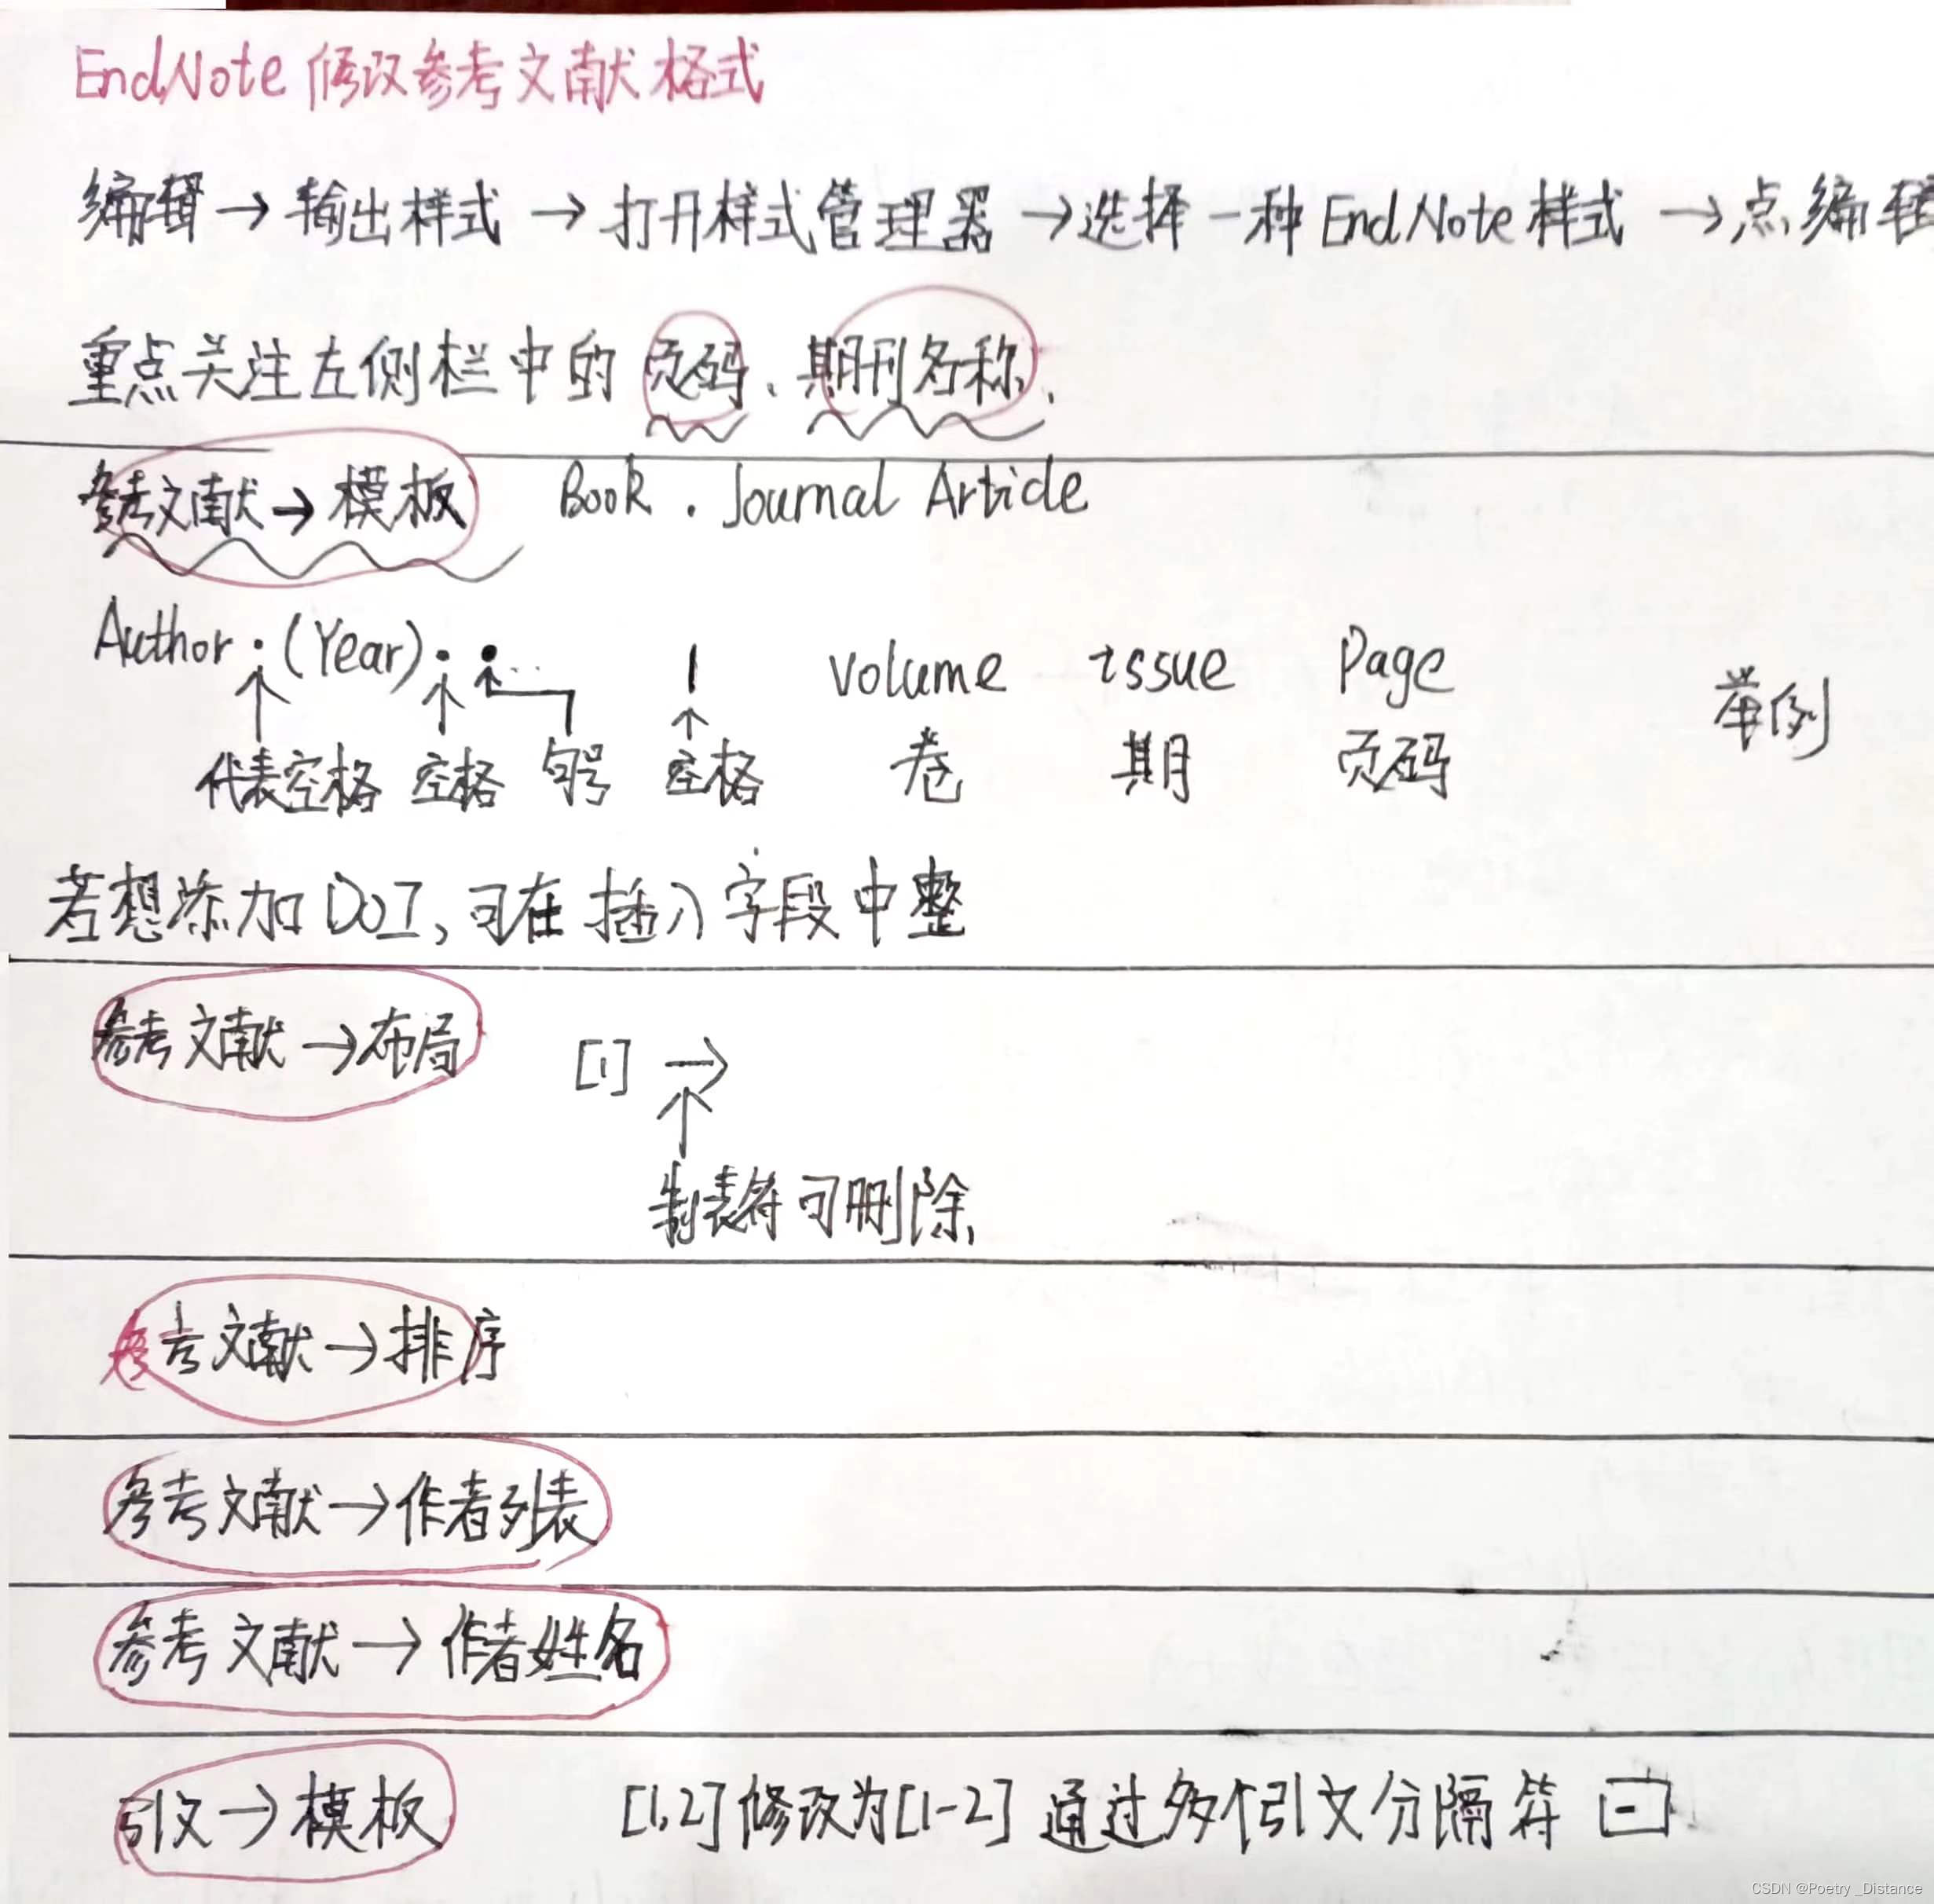 EndNote 修改参考文献格式
编辑→输出样式→打开样式管理器→选择一种EndNote样式→点编辑
重点关注左侧栏中的 页码、期刊名称、
参考文献→模板 Book. Journal Article
Author·(Year)·. | volume issue Page
代表空格 空格 句号 空格 卷 期 页码 举例
若想添加DOI,可在插入字段中整
参考文献→布局 [1] →
制表符可删除
参考文献→排序
参考文献→作者列表
参考文献→作者姓名
引文→模板 [1,2]修改为[1-2] 通过多个引文分隔符 -
CSDN @Poetry _Distance